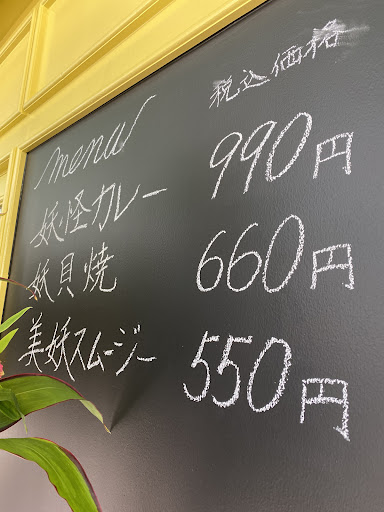 menu 税込価格
妖怪カレー 990円
妖貝焼 660円
美妖スムージー 550円